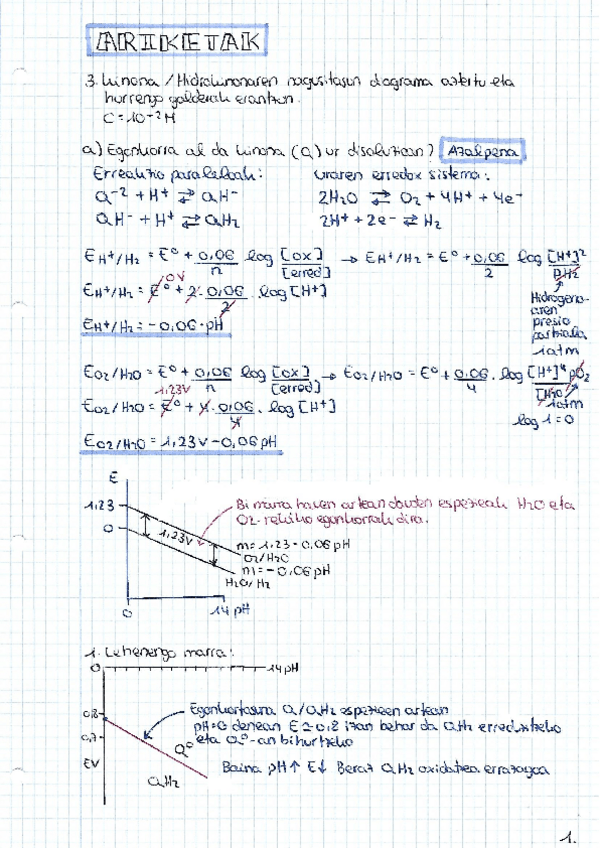 ARIKETAK
3. Kinona / Hidrokinonaren nagusitasun diagrama aztertu eta
hurrengo galderak erantzun.
C = 10⁻² M
a) Egonkorra al da kinona (Q) ur disoluzioan? Azalpena
Erreakzio paraleloak:
Q⁻² + H⁺ ⇄ QH⁻
QH⁻ + H⁺ ⇄ QH₂
Uraren erredox sistema:
2H₂O ⇄ O₂ + 4H⁺ + 4e⁻
2H⁺ + 2e⁻ ⇄ H₂
E H⁺/H₂ = E⁰ + 0,06/n log [ox]/[erred] → E H⁺/H₂ = E⁰ + 0,06/2 log [H⁺]²/pH₂
0V
E H⁺/H₂ = E⁰ + 2·0,06/2 · log [H⁺]
E H⁺/H₂ = -0,06·pH
Hidrogeno-
aren
presio
partziala
1atm
E O₂/H₂O = E⁰ + 0,06/n log [ox]/[erred] → E O₂/H₂O = E⁰ + 0,06/4 · log [H⁺]⁴ pO₂/[H₂O]
1,23V
1atm
E O₂/H₂O = E⁰ + 4·0,06/4 · log [H⁺]
log 1 = 0
E O₂/H₂O = 1,23V - 0,06 pH
E
1,23
0
1,23V
Bi marra hauen artean dauden espezieak H₂O eta
O₂-rekiko egonkorrak dira.
m = 1,23 - 0,06 pH
O₂/H₂O
m = -0,06 pH
H₂O/H₂
0
14 pH
1. Lehenengo marra:
0
14 pH
0,8
0,7
EV
Q⁰
QH₂
Egonkortasuna Q/QH₂ espezieen artean
pH=0 denean E≃0,8 izan behar da QH₂
eta Q⁰-an bihurtzeko
Baina pH↑ E↓ Beraz QH₂ oxidatzea errazagoa
1.